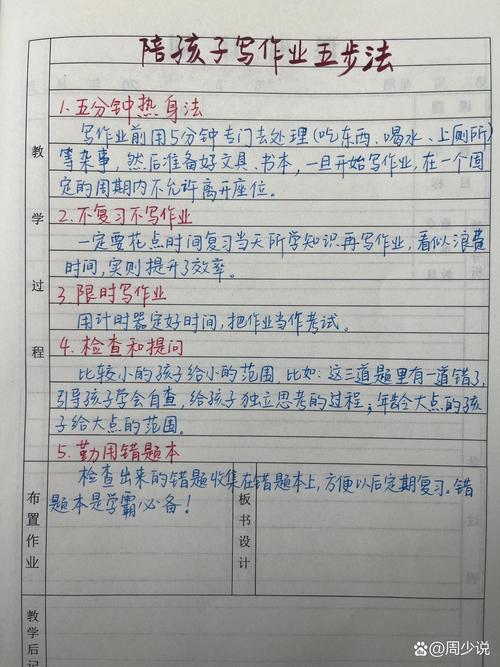 陪孩子写作业五步法
1.五分钟热身法
写作业前用5分钟专门去处理(吃东西、喝水、上厕所)
等杂事,然后准备好文具、书本,一旦开始写作业,在一个固
定的周期内不允许离开座位。
2.不复习不写作业
一定要花点时间复习当天所学知识再写作业,看似浪费
时间,实则提升了效率。
3.限时写作业
用计时器定好时间,把作业当作考试。
4.检查和提问
比较小的孩子给小的范围,比如:这三道题里有一道错了,
引导孩子学会自查,给孩子独立思考的过程;年龄大点的孩
子给大点的范围。
5.勤用错题本
检查出来的错题收集在错题本上,方便以后定期复习。错
题本是学霸必备!
教学过程
布置作业
板书设计
教学后记
百度@周少说